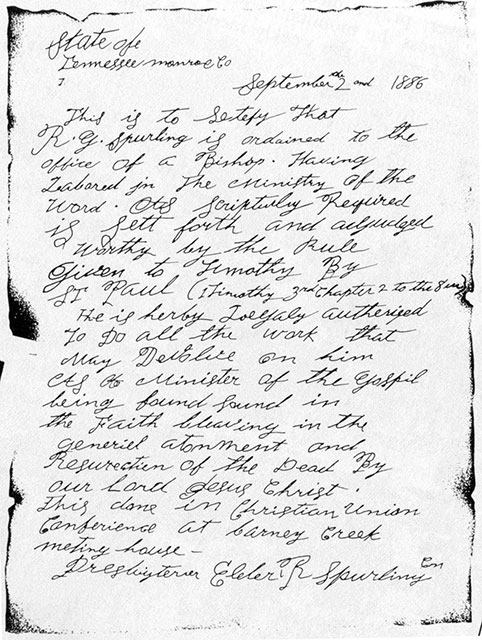 State of
Tennessee monroe Co
September 2nd 1886
This is to Setefy That
R. G. Spurling is ordained to the
office of a Bishop. Having
Labored in The Ministry of the
Word. As Scripturly Required
is Sett forth and adjudged
Worthy by the Rule
Given to Timothy By
ST Paul (1Timothy 3rd Chapter 2 to the 8
He is herby Loegaly autherised
To Do all the Work that
May on him
As A Minister of the Gospil
being found Sound in
the Faith bleaving in the
generiel atonment and
Resurection of the Dead By
our Lord Jesus Christ.
This done in Christian Union
Conference at barney Creek
meting house -
Presbyterer Elder R Spurling